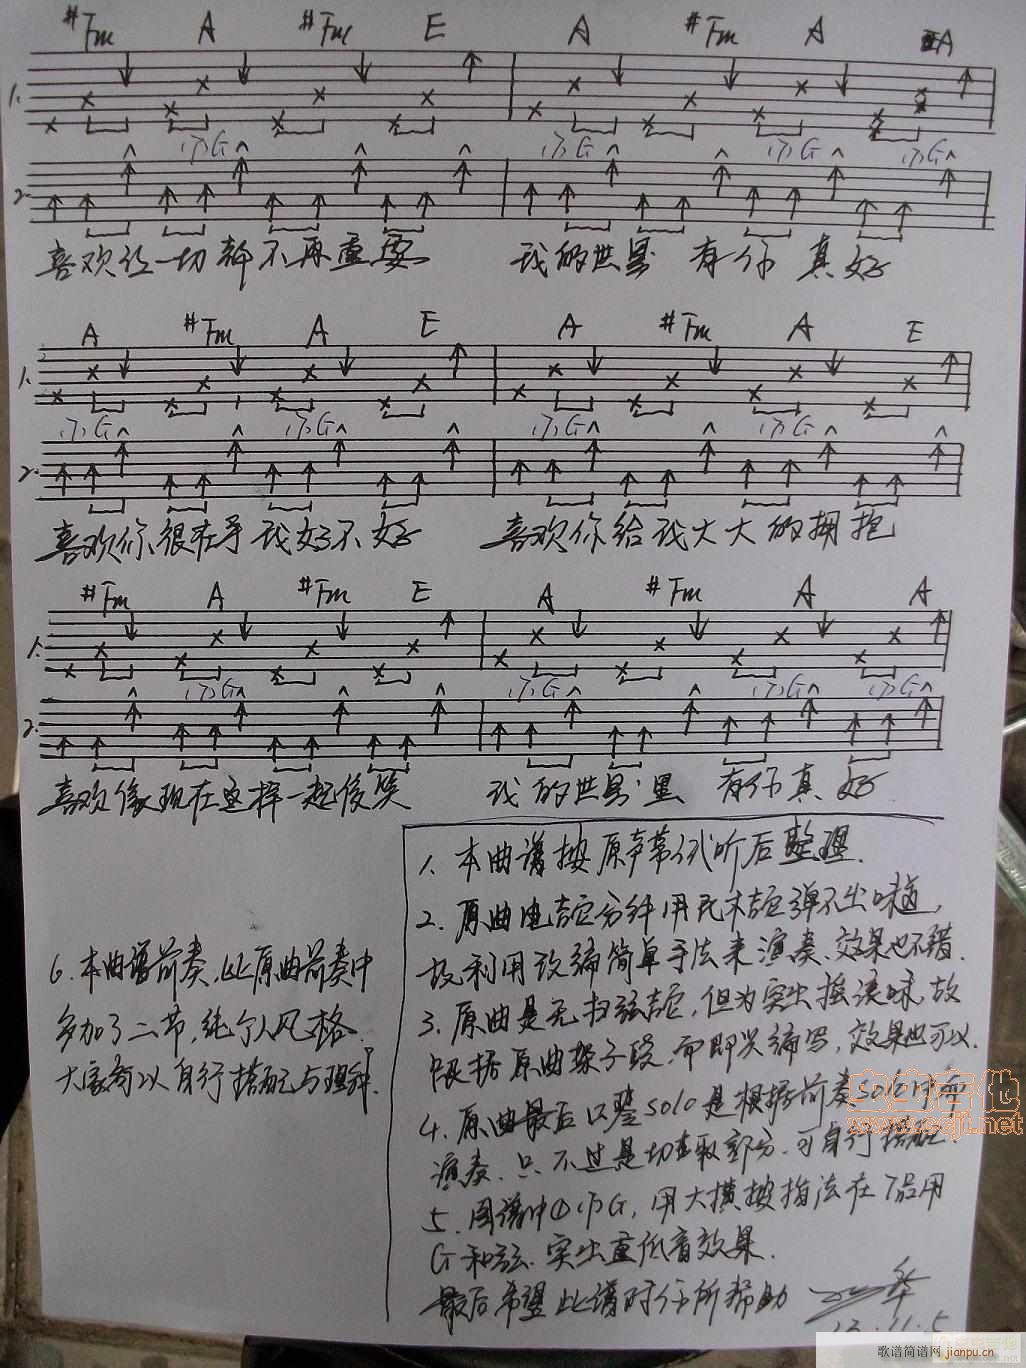 #Fm A #Fm E A #Fm A A
1.
(7)G (7)G (7)G (7)G
2.
喜欢这一切都不再重要 我的世界 有你 真好
A #Fm A E A #Fm A E
1.
(7)G (7)G (7)G (7)G
2.
喜欢你很在乎我好不好 喜欢你给我大大的拥抱
#Fm A #Fm E A #Fm A A
1.
(7)G (7)G (7)G (7)G
2.
喜欢像现在这样一起傻笑 我的世界里 有你真好
1. 本曲谱按原声带试听后整理.
2. 原曲电吉它分解用民木吉它弹不出味道,
故利用改编简单手法来演奏.效果也不错.
3. 原曲是无扫弦吉它,但为突出摇滚味,故
根据原曲架子段.而即兴编写,效果也可以.
4. 原曲最后只鉴solo是根据前奏solo
演奏.只不过是切截取部分.可自行搭配.
5. 图谱中 G, 用大横按指法在7品用
G和弦.突出重低音效果.
最后希望此谱对你有所帮助
华
12.11.5
6. 本曲谱前奏.比原曲前奏中
多加了二节,纯个人风格.
大家可以自行搭配与理解.
虫虫吉他
www.ccjt.net
歌谱简谱网
jianpu.cn